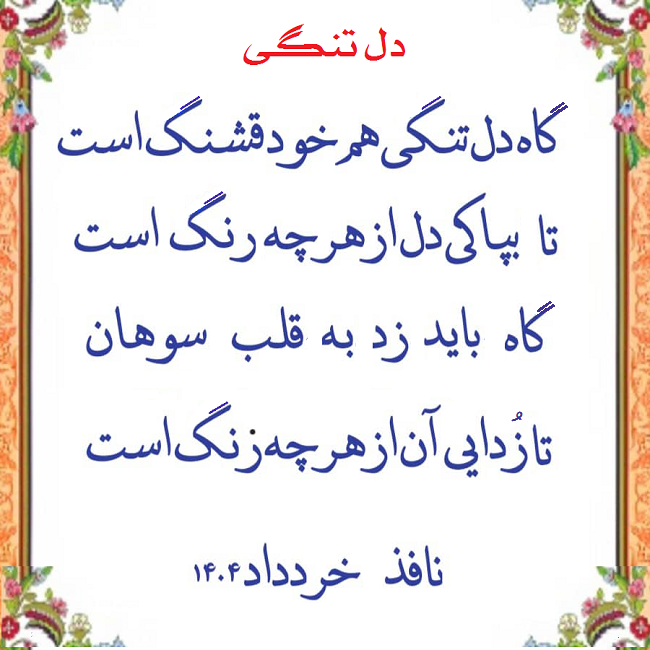 دل تنگی
گاه دل تنگی هم خود قشنگ است
تا بپاکی دل از هر چه رنگ است
گاه باید زد به قلب سوهان
تا زُدایی آن از هر چه زنگ است
نافذ خرداد ۱۴۰۴